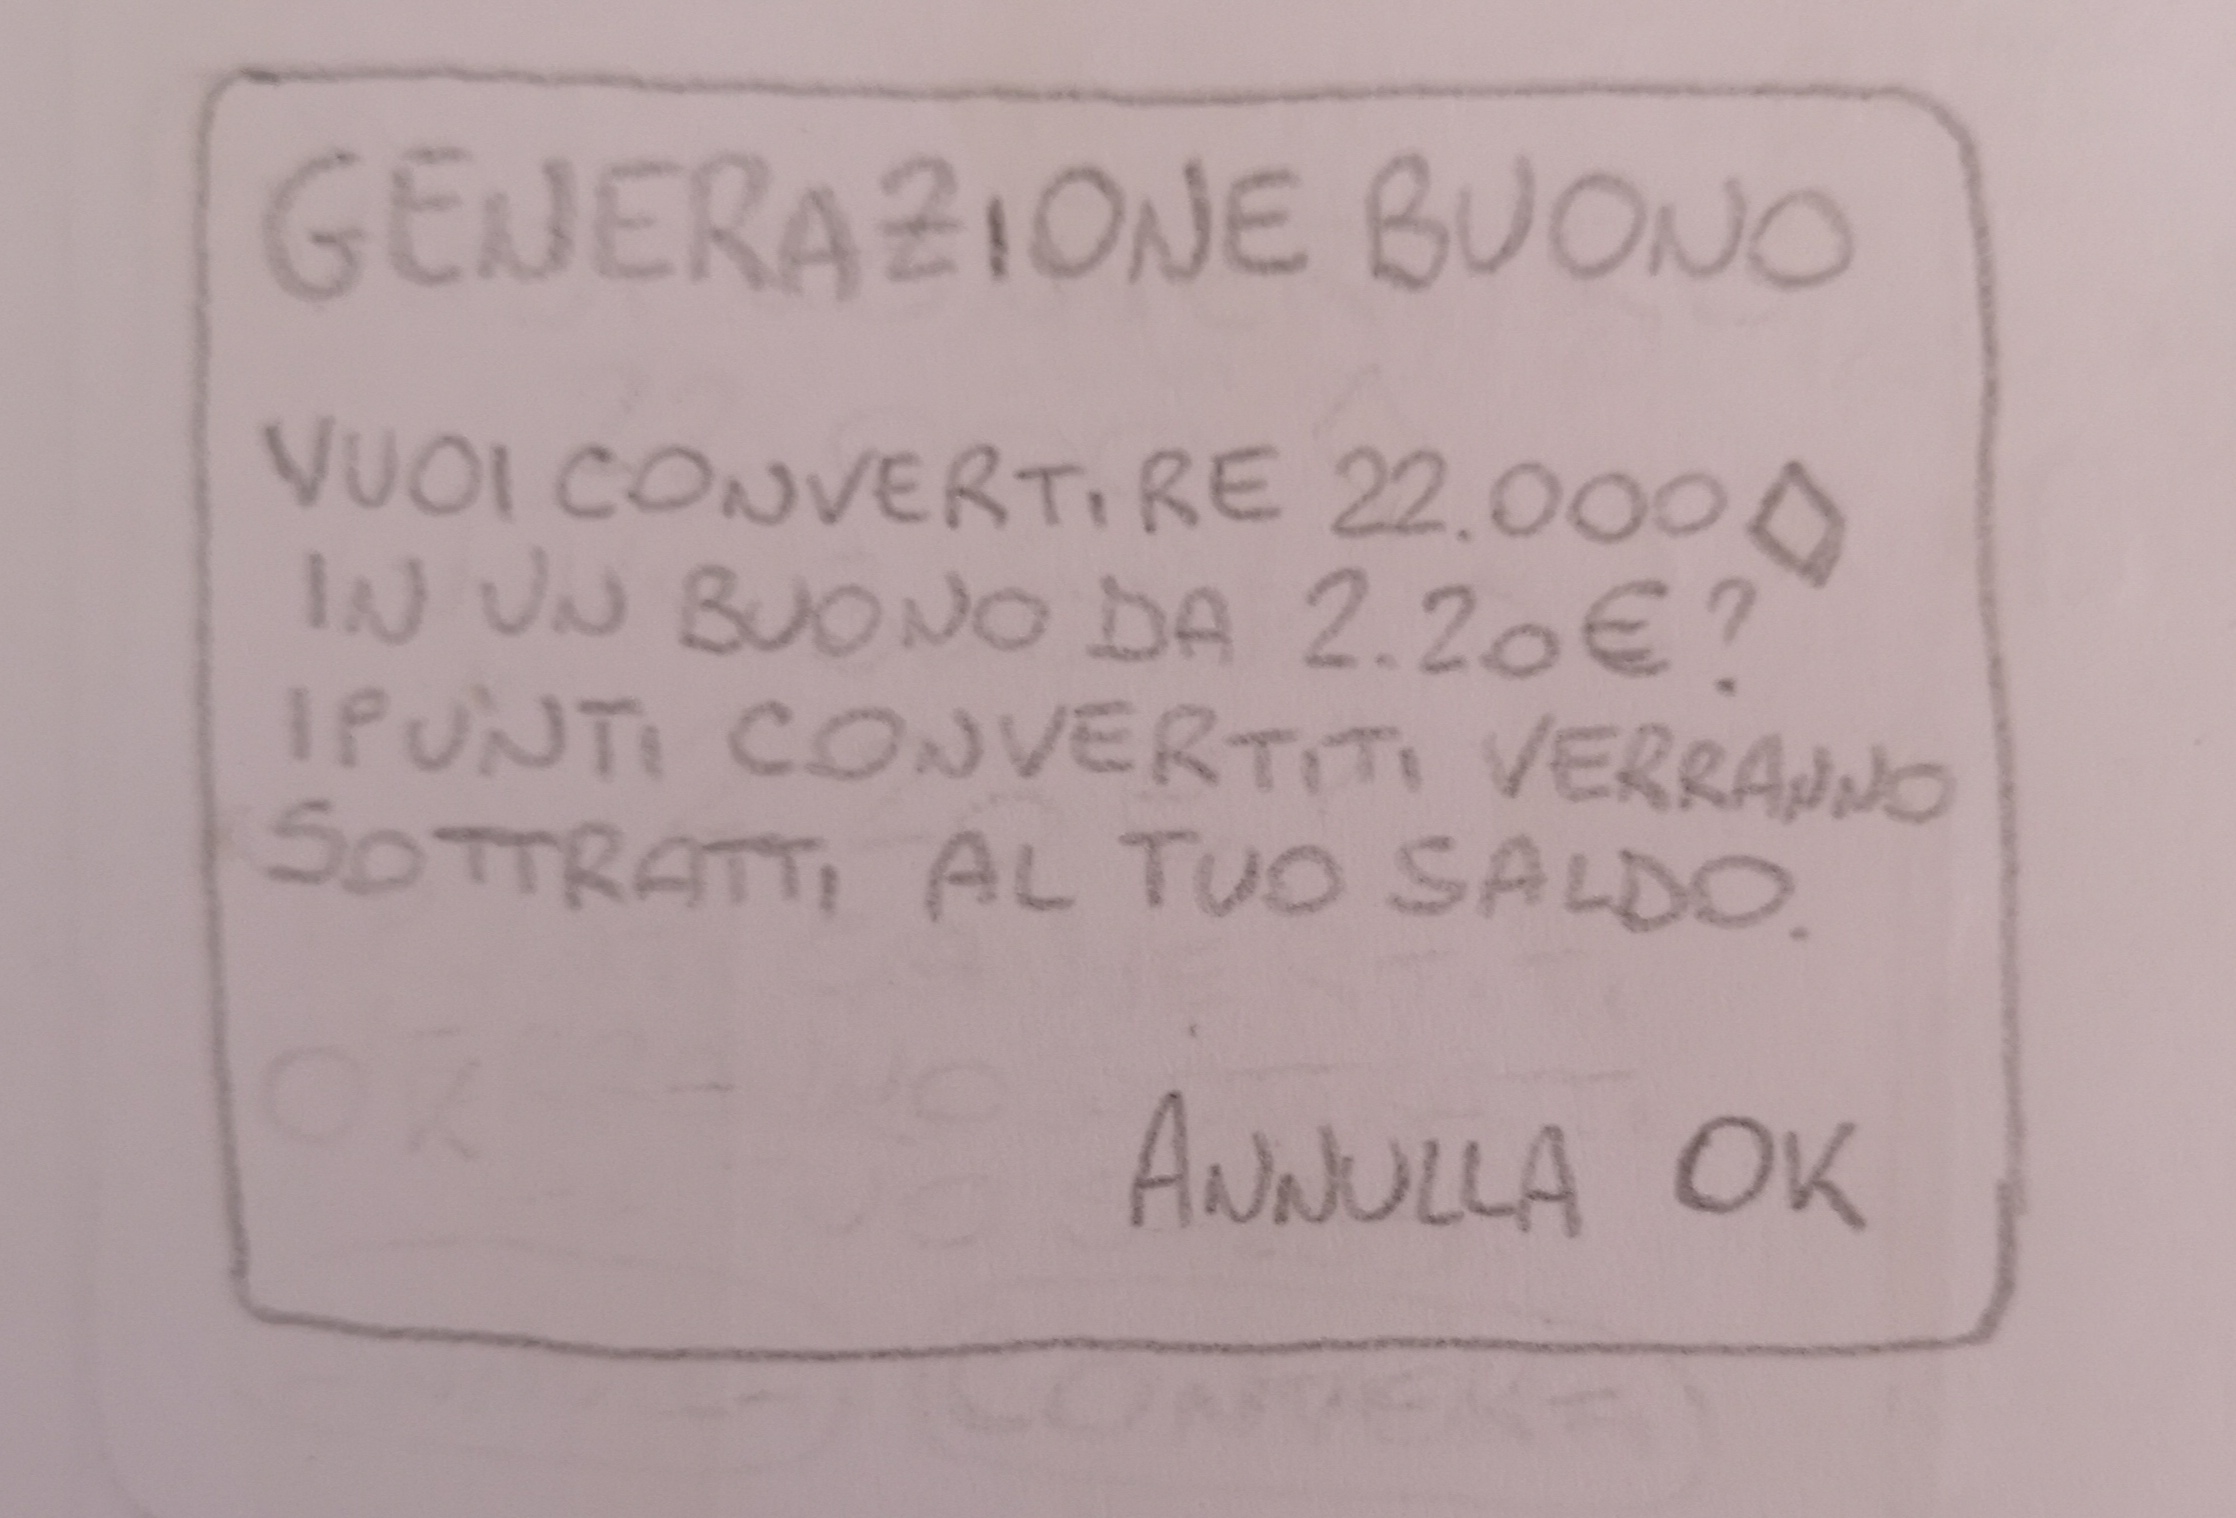 GENERAZIONE BUONO
VUOI CONVERTIRE 22.000◇
IN UN BUONO DA 2.20€?
I PUNTI CONVERTITI VERRANNO
SOTTRATTI AL TUO SALDO.
ANNULLA OK